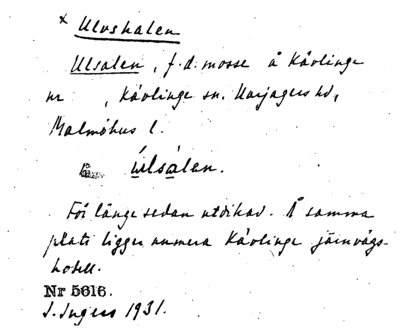 × Ulvshalen
Ulsalen, f.d. mosse å Kävlinge
nr , Kävlinge sn. Harjagers hd,
Malmöhus l.
úlsàlen.
För länge sedan utdikad. Å samma
plats ligger numera Kävlinge järnvägs-
hotell.
Nr 5616.
I. Ingers 1931.